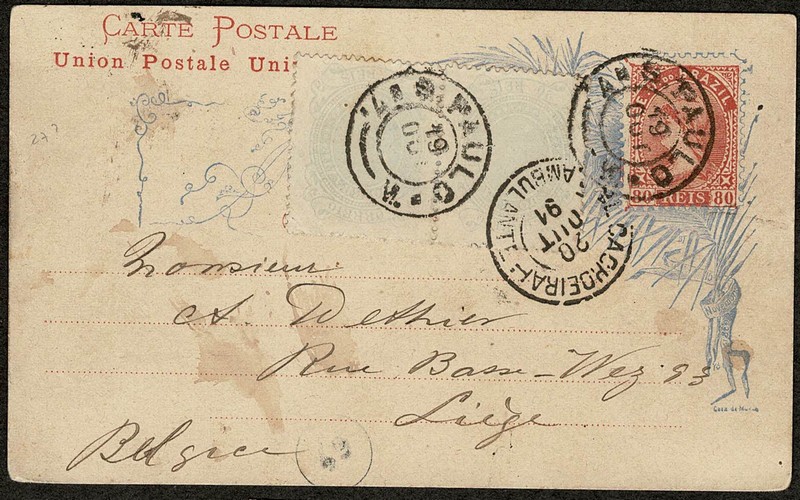 CARTE POSTALE
Union Postale Uni
S. PAULO
19
S. PAULO
19
OUT
BRAZIL
80 REIS 80
CACHOEIRA
AMBULANTE
20
OUT
91
277
Monsieur
A. Dethier
Rue Basse-Wez 93
Liège
Belgica
Casa da Moeda